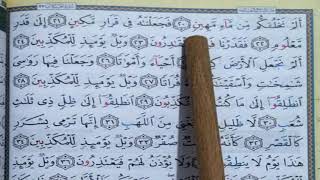 أَلَمْ نَخْلُقْكُّمْ مِّنْ مَّآءٍ مَّهِينٍ ٢٠ فَجَعَلْنَٰهُ فِى قَرَارٍ مَّكِينٍ ٢١ إِلَىٰ قَدَرٍ
مَّعْلُومٍ ٢٢ فَقَدَرْنَا ٱلْقَٰدِرُونَ ٢٣ وَيْلٌ يَوْمَئِذٍ لِّلْمُكَذِّبِينَ ٢٤
أَلَمْ نَجْعَلِ ٱلْأَرْضَ أَحْيَآءً وَأَمْوَٰتًا ٢٦ وَجَعَلْنَا فِيهَا رَوَٰسِىَ
شَٰمِخَٰتٍ وَأَسْقَيْنَٰكُمْ فُرَاتًا ٢٧ وَيْلٌ يَوْمَئِذٍ لِّلْمُكَذِّبِينَ ٢٨
ٱنْطَلِقُوٓا۟ إِلَىٰ مَا كُنْتُمْ تُكَذِّبُونَ ٢٩ ٱنْطَلِقُوٓا۟ إِلَىٰ ظِلٍّ ذِى ثَلَٰثِ
شُعَبٍ ٣٠ لَّا ظَلِيلٍ يُغْنِى مِنَ ٱللَّهَبِ ٣١ إِنَّهَا تَرْمِى بِشَرَرٍ
كَٱلْقَصْرِ ٣٢ كَأَنَّهُۥ صُفْرٌ ٣٣ وَيْلٌ يَوْمَئِذٍ لِّلْمُكَذِّبِينَ ٣٤
هَٰذَا يَوْمُ لَا يَنْطِقُونَ وَلَا يُؤْذَنُ لَهُمْ فَيَعْتَذِرُونَ ٣٦ وَيْلٌ يَوْمَئِذٍ